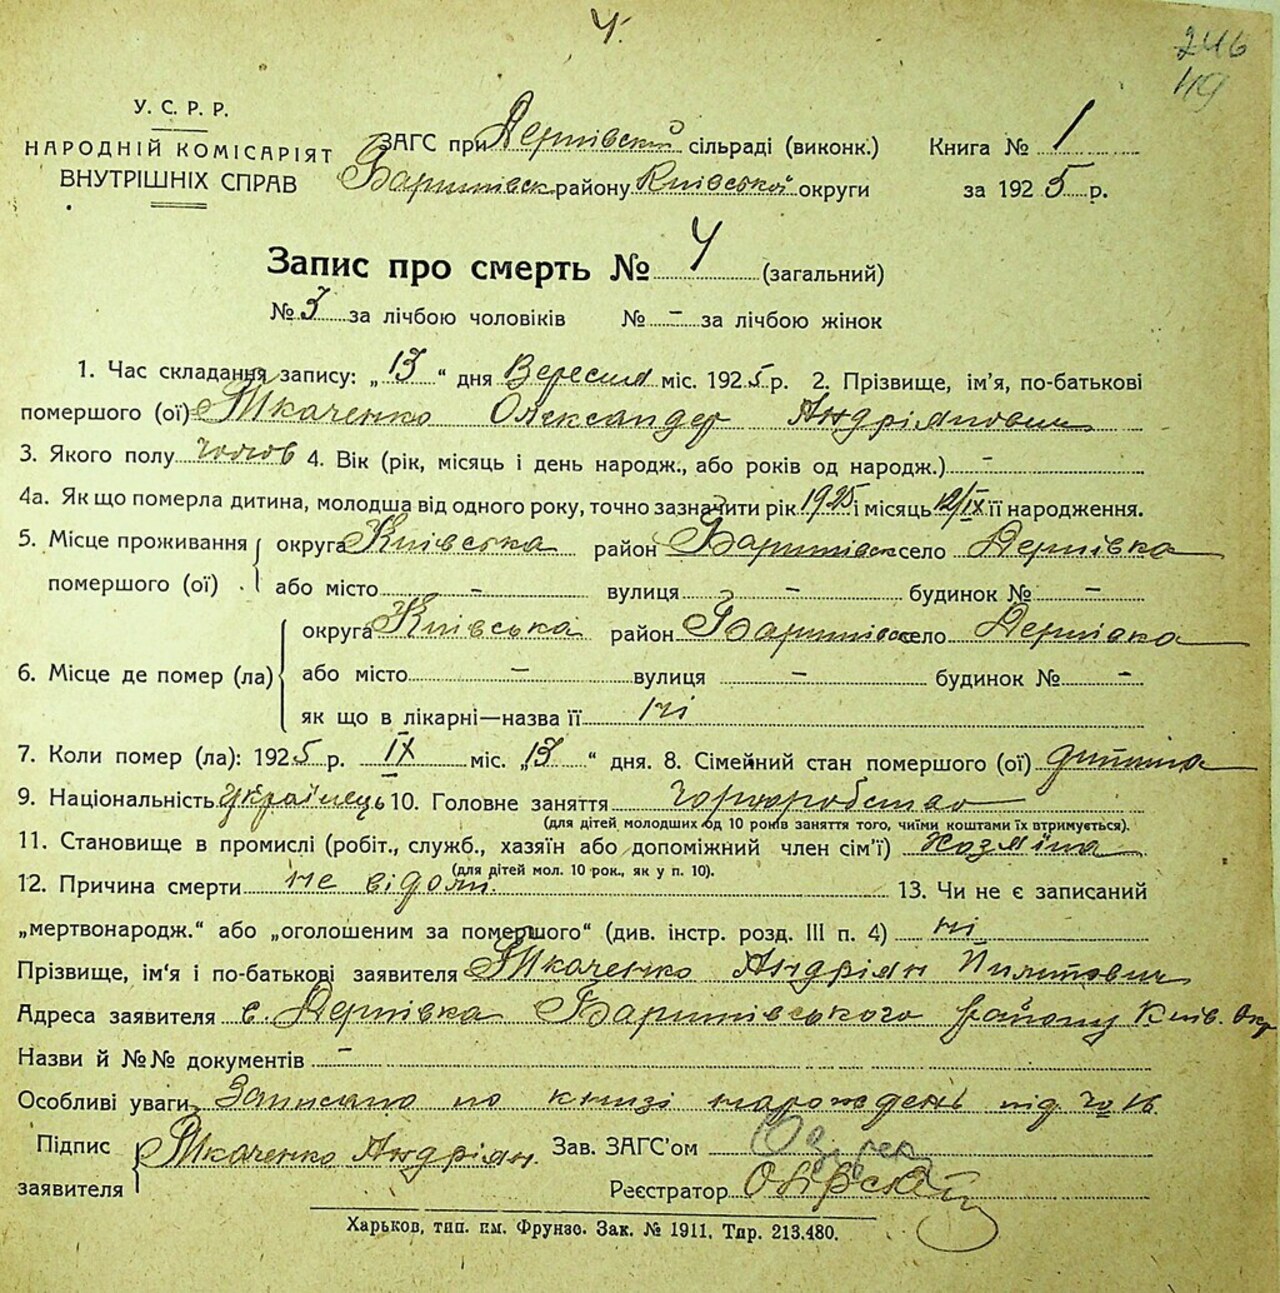 4.
246
49
У. С. Р. Р.
НАРОДНІЙ КОМІСАРІЯТ
ВНУТРІШНІХ СПРАВ
ЗАГС при Дернівській сільраді (виконк.)
Баришівськ району Київської округи
Книга № 1
за 1925 р.
Запис про смерть № 4 (загальний)
№ 3 за лічбою чоловіків № - за лічбою жінок
1. Час складання запису: „13“ дня Вересня міс. 1925 р. 2. Прізвище, ім'я, по-батькові
помершого (ої) Ткаченко Олександер Андріянович
3. Якого полу чолов 4. Вік (рік, місяць і день народж., або років од народж.) -
4а. Як що померла дитина, молодша від одного року, точно зазначити рік 1925 і місяць 12/IX її народження.
5. Місце проживання помершого (ої) округа Київська район Баришівськ село Дернівка
або місто - вулиця - будинок № -
6. Місце де помер (ла) округа Київська район Баришівськ село Дернівка
або місто - вулиця - будинок № -
як що в лікарні—назва її ні
7. Коли помер (ла): 1925 р. IX міс. „13“ дня. 8. Сімейний стан помершого (ої) дитина
9. Національність Українець 10. Головне заняття
(для дітей молодших од 10 років заняття того, чиїми коштами їх втримується).
11. Становище в промислі (робіт., служб., хазяїн або допоміжний член сім'ї)
(для дітей мол. 10 рок., як у п. 10).
12. Причина смерти не відом. 13. Чи не є записаний
„мертвонародж.“ або „оголошеним за помершого“ (див. інстр. розд. III п. 4) ні
Прізвище, ім'я і по-батькові заявителя Ткаченко Андріян
Адреса заявителя с. Дернівка Баришівського району Київ. Окр
Назви й №№ документів -
Особливі уваги Записано по книзі народжень під № 16
Підпис заявителя Ткаченко Андріян. Зав. ЗАГС'ом
Реєстратор
Харьков, тип. им. Фрунзе. Зак. № 1911. Тир. 213.480.